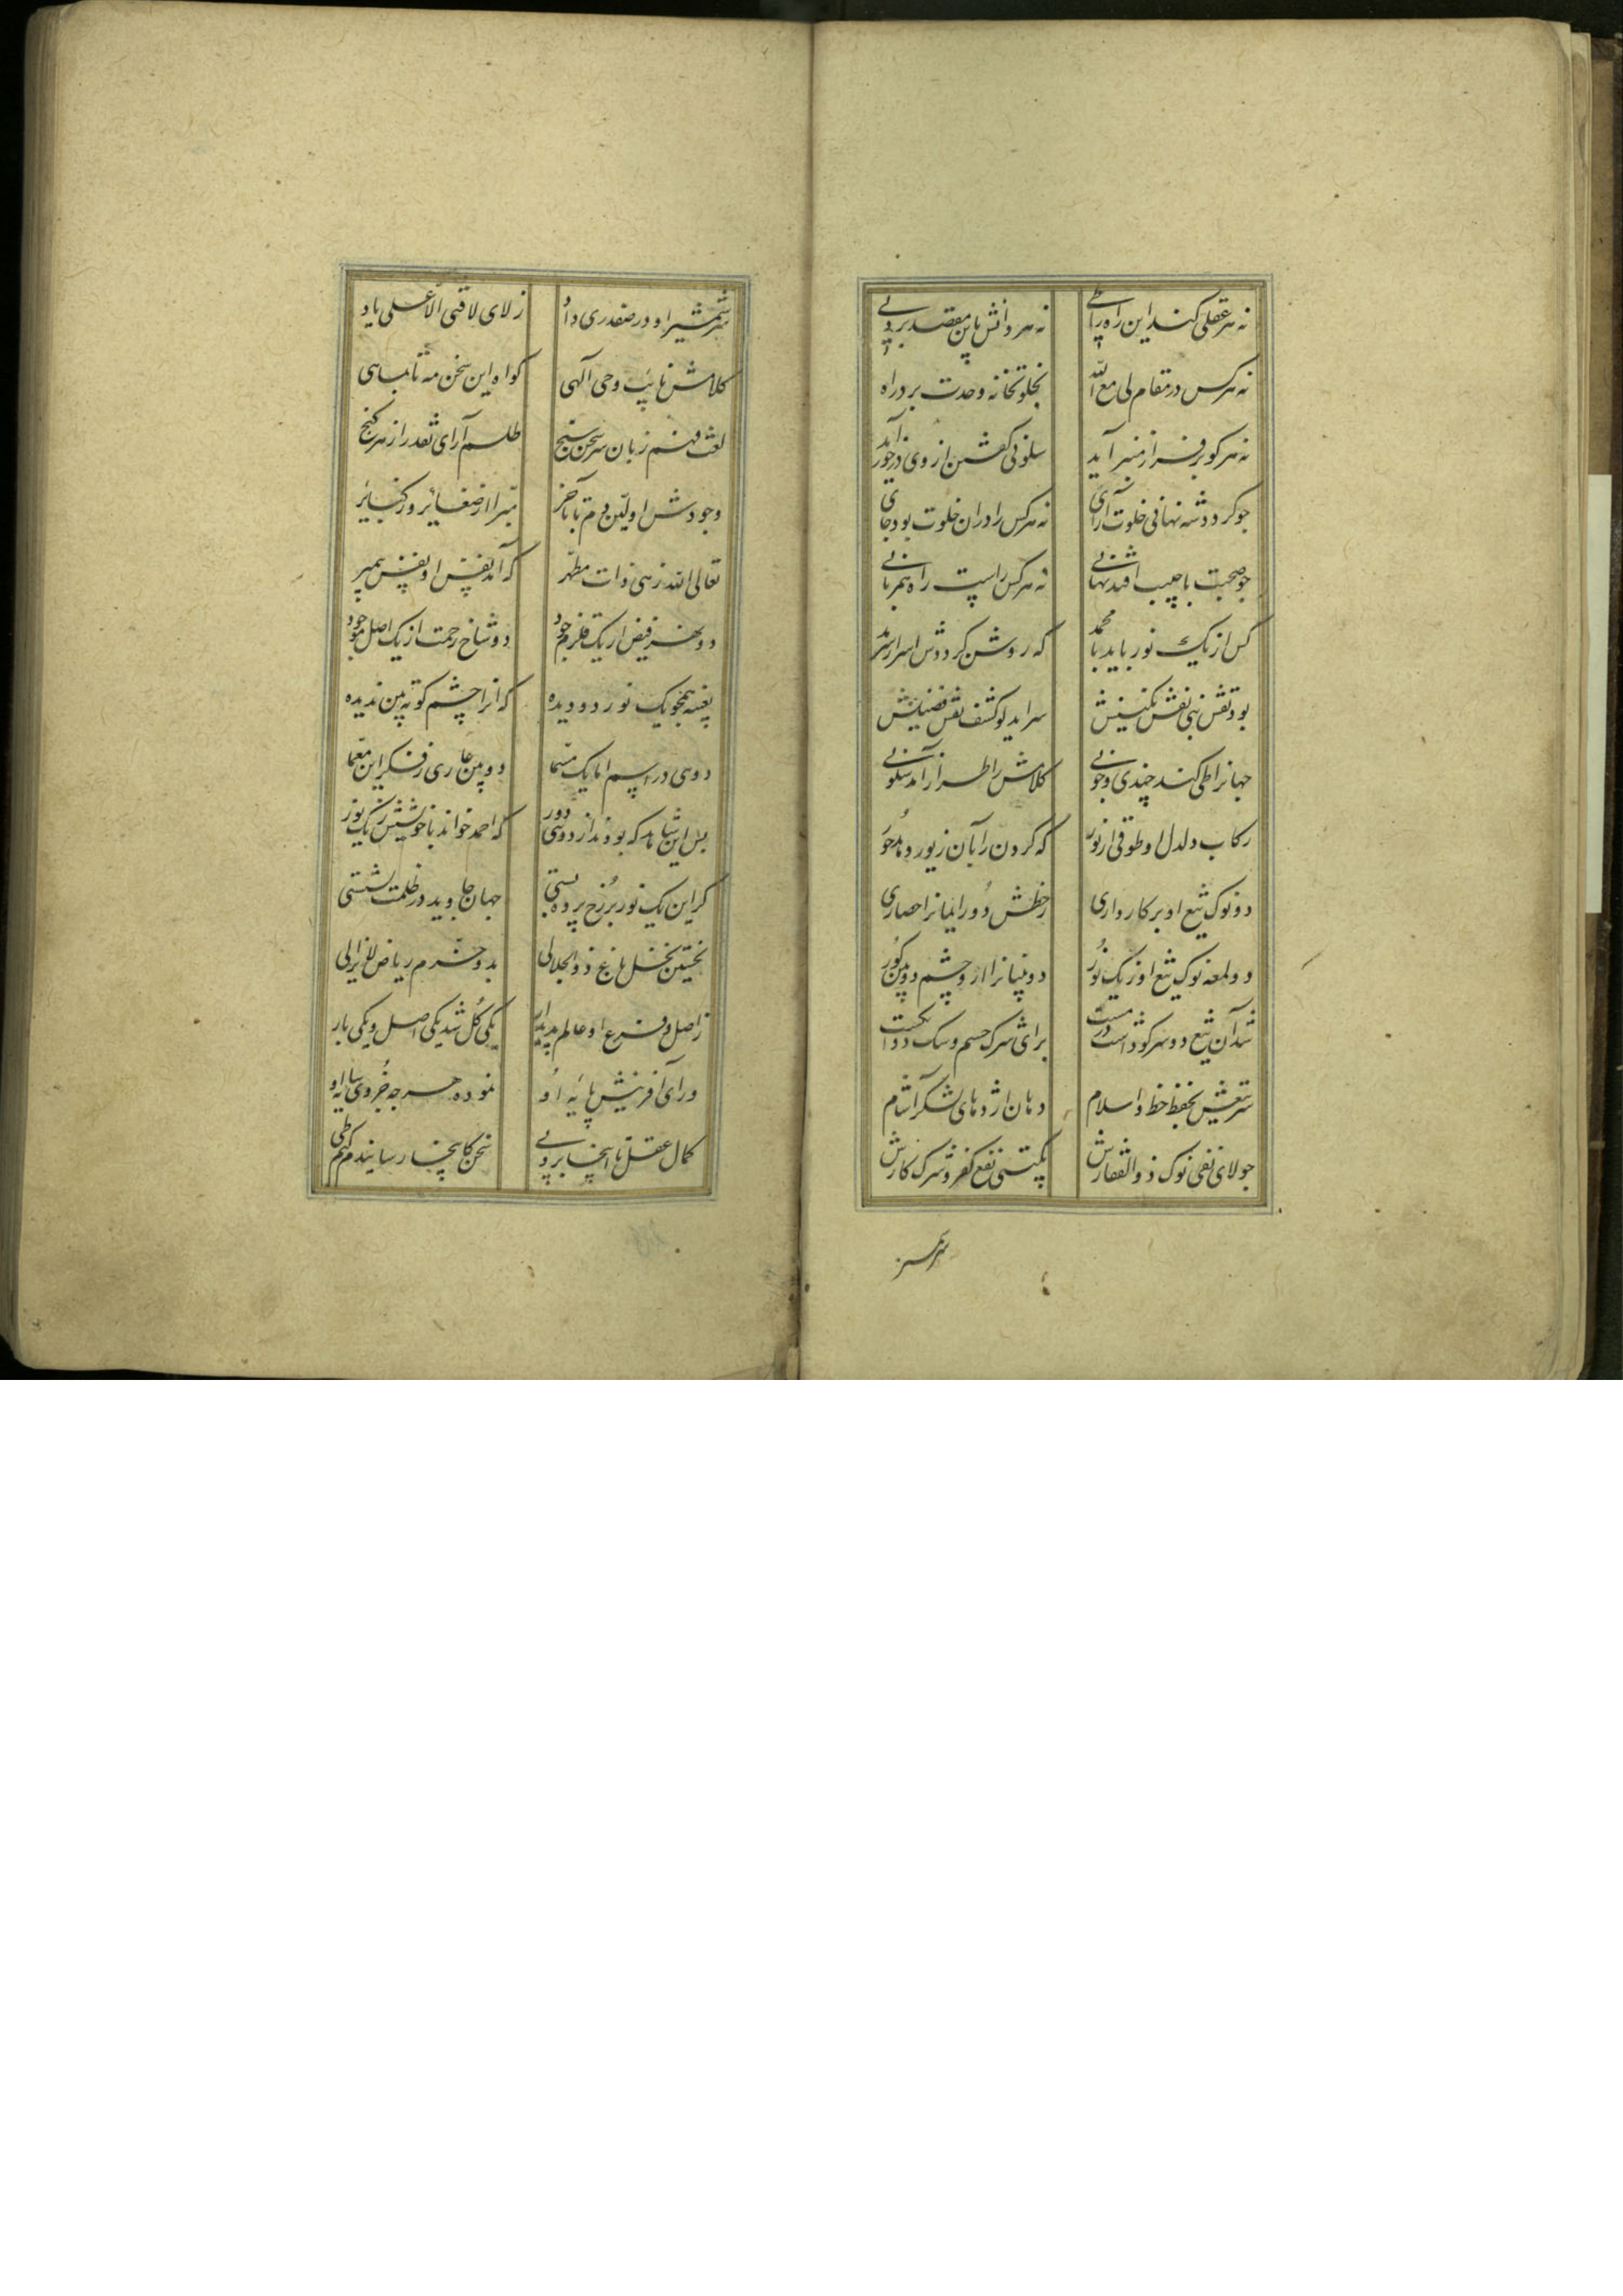 نه هر عقلی کند این راه را طی نه هر دانش باین مقصد برد پی
نه هر کس در مقام لی مع الله بخلوتخانه وحدت برد راه
نه هر کو بر فراز منبر آید سلونی گفتن از وی در خور آید
جو کردد شه نهانی خلوت آرای نه هر کس را دران خلوت بود جای
جو صحبت با حبیب افتد نهانی نه هر کس راست راه همزبانی
کس از یک نور باید با محمد که روشن کرددش اسرار سرمد
بود نقش نبی نقش نکینش سراید لو کشف نقش
جهانرا طی کند چندی و جونی کلامش را طراز آمد سلونی
رکاب دلدل او طوقی از نور که کردن را بآن زیور دهد حور
دو نوک تیغ او پرکار واری ز خطش دور ایمانرا حصاری
دو لمعه نوک تیغ او ز یک نور دو بینانرا ازو چشم دو بین کور
شد آن تیغ دو سر کو داشت در مشت برای شرک جسم و سک دو انکشت
سر تیغش بحفظ خط اسلام دهان اژدهای لشکر آشام
جو لای نفی نوک ذوالفقارش بکیتی نفی کفر و شرک کارش
سر شمشیر
سر شمشیر او در صفدری داد ز لای لا فتی الا علی یاد
کلامش نایب وحی آلهی کواه این سخن مه تا بماهی
لغت فهم زبان هر سخن سنج طلسم آرای نقد راز هر کنج
وجودش اولین دم تا بآخر مبرا از صغایر وز کبایر
تعالی الله زهی ذات مطهر که آمد نفس او نفس پیمبر
دو نهر فیض از یک قلزم جود دو شاخ رحمت از یک اصل موجود
بعینه همچو یک نور دو دیده که آنرا چشم کوته بین ندیده
دویی در اسم اما یک مسما دو بین عاری ز فکر این معما
بس این شاهد که بودند از دویی دور که احمد خواند با خویشش ز یک نور
کر این یک نور بر رخ پرده بستی جهان جاوید در ظلمت نشستی
نخستین نخل باغ ذوالجلالی بدو خرم ریاض لایزالی
ز اصل و فرع او عالم پدیدار یکی کل شد یکی اصل و یکی بار
ورای آفرینش پایه او نموده هر جه جزوی سایه او
کمال عقل تا اینجا برد پی سخن کاینجا رسانیدم کنم طی